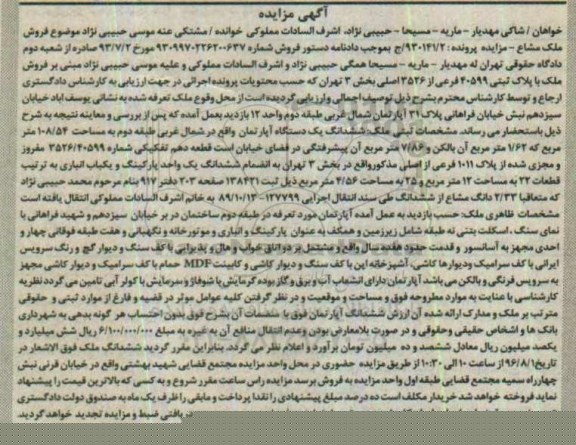 آگهی مزایده
خواهان / شاکی مهدیار - ماریه - مسیحا - حبیبی نژاد، اشرف السادات مملوکی خوانده / مشتکی عنه موسی حبیبی نژاد موضوع فروش
ملک مشاع - مزایده پرونده : ۹۳۰۱۴۱/۲/ج بموجب دادنامه دستور فروش شماره ۹۳۰۹۹۷۰۲۲۶۲۰۰۶۳۷ مورخ ۹۳/۷/۲ صادره از شعبه دوم
دادگاه حقوقی تهران له مهدیار - ماریه - مسیحا همگی حبیبی نژاد و اشرف السادات مملوکی و علیه موسی حبیبی نژاد مبنی بر فروش
ملک با پلاک ثبتی ۴۰۵۹۹ فرعی از ۳۵۲۶ اصلی بخش ۳ تهران که حسب محتویات پرونده اجرائی در جهت ارزیابی به کارشناس دادگستری
ارجاع و توسط کارشناس محترم بشرح ذیل توصیف اجمالی و ارزیابی گردیده است از محل وقوع ملک تعرفه شده به نشانی یوسف اباد خیابان
سیزدهم نبش خیابان فراهانی پلاک ۳۱ آپارتمان شمال غربی طبقه دوم واحد ۱۲ بازدید بعمل آمده که پس از بررسی و معاینه نتیجه به شرح
ذیل باستحضار می رساند. مشخصات ثبتی ملک، ششدانگ یک دستگاه آپارتمان واقع در شمال غربی طبقه دوم به مساحت ۱۰۸/۵۴ متر
مربع که ۱/۶۲ متر مربع آن بالکن و ۷/۸۶ متر مربع آن پیشرفتگی در فضای خیابان است قطعه دهم تفکیکی شماره ۳۵۲۶/۴۰۵۹۹ مفروز
و مجزی شده از پلاک ۱۰۱۱ فرعی از اصلی مذکور واقع در بخش ۳ تهران به انضمام ششدانگ یک واحد پارکینگ و یکباب انباری به ترتیب
قطعات ۲۲ به مساحت ۱۲ متر مربع و ۲۵ به مساحت ۴/۵۶ متر مربع ذیل ثبت ۱۳۸۴۳۱ صفحه ۲۰۳ دفتر ۹۱۷ بنام مرحوم محمد حبیبی نژاد
که متعاقبا ۲/۳۳ دانگ مشاع از ششدانگ طی سند انتقال اجرایی ۱۳۷۷۹۹-۸۹/۱۰/۱۲ به خانم اشرف السادات مملوکی انتقال یافته است
مشخصات ظاهری ملک: حسب بازدید به عمل آمده آپارتمان مورد تعرفه در طبقه دوم ساختمان در بر خیابان سیزدهم و شهید فراهانی با
نمای سنگ ، اسکلت بتنی نه طبقه شامل زیرزمین و همکف به عنوان پارکینگ و انباری و موتورخانه و نگهبانی و هفت طبقه فوقانی چهار و
احدی مجهز به آسانسور و قدمت حدود هفده سال واقع و مشتمل بر دو اتاق خواب و هال و پذیرایی با کف سنگ و دیوار گچ و رنگ سرویس
ایرانی با کف سرامیک و دیوارها کاشی، آشپزخانه اپن با کف سنگ و دیوار کاشی و کابینت MDF حمام با کف سرامیک و دیوار کاشی مجهز
به سرویس فرنگی و بالکن می باشد آپارتمان دارای انشعاب آب و برق و گاز بوده گرمایش با شوفاژ و سرمایش با کولر آبی تامین می گردد نظریه
کارشناسی با عنایت به موارد مطروحه فوق و مساحت و موقعیت و در نظر گرفتن کلیه عوامل موثر در قضیه و فارغ از موارد ثبتی و حقوقی
مترتب بر ملک و مدارک ارائه شده آن ارزش ششدانگ آپارتمان فوق با منضمات آن بشرح فوق بدون احتساب هر گونه بدهی به شهرداری
بانک ها و اشخاص حقیقی و حقوقی و در صورت بلامعارض بودن وعدم انتقال منافع آن به غیره به مبلغ ۶/۱۰۰/۰۰۰/۰۰۰ ریال شش میلیارد و
یکصد میلیون ریال معادل ششصد و ده میلیون تومان برآورد و اعلام نظر می گردد. بنابراین مقرر گردید ششدانگ ملک فوق الاشعار در
تاریخ ۹۶/۸/۱ از ساعت ۱۰ الی ۱۰:۳۰ از طریق مزایده حضوری در محل واحد مزایده مجتمع قضایی شهید بهشتی واقع در خیابان قرنی نبش
چهارراه سمیه مجتمع قضایی طبقه اول واحد مزایده به فروش برسد مزایده راس ساعت مقرر شروع و به کسی که بالاترین قیمت را پیشنهاد
نماید فروخته خواهد شد خریدار مکلف است ده درصد مبلغ پیشنهادی را نقدا پرداخت و مابقی را ظرف یک ماه به صندوق دولت دادگستری
دریافتی ضبط و مزایده تجدید خواهد گردید.